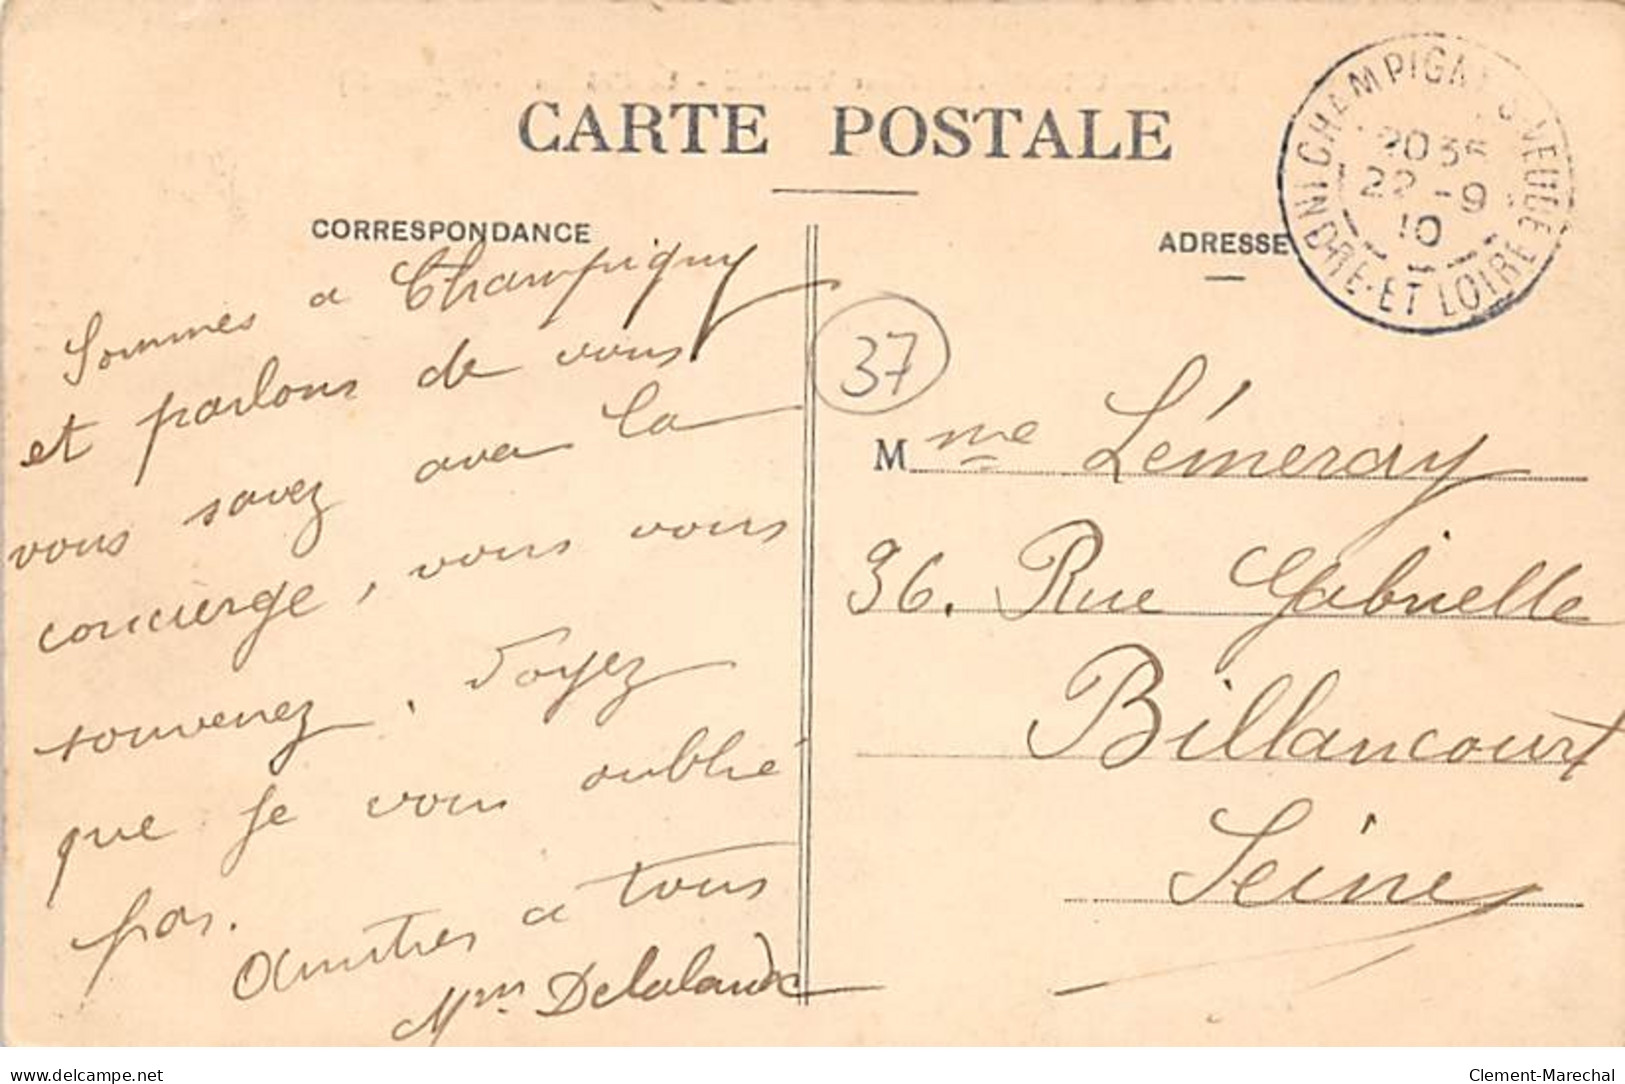 CARTE POSTALE
CORRESPONDANCE
ADRESSE
CHAMPIGNY S VEUDE
INDRE-ET-LOIRE
2035
22-9
10
37
Sommes a Champigny
et parlons de vous
vous savez avec la
concierge, vous vous
souvenez. Voyez
que je vous oublie
pas.
Amitiés a tous
Mme Delalande
Mme Lémeray
36. Rue Gabrielle
Billancourt
Seine
delcampe.net
Clement-Marechal